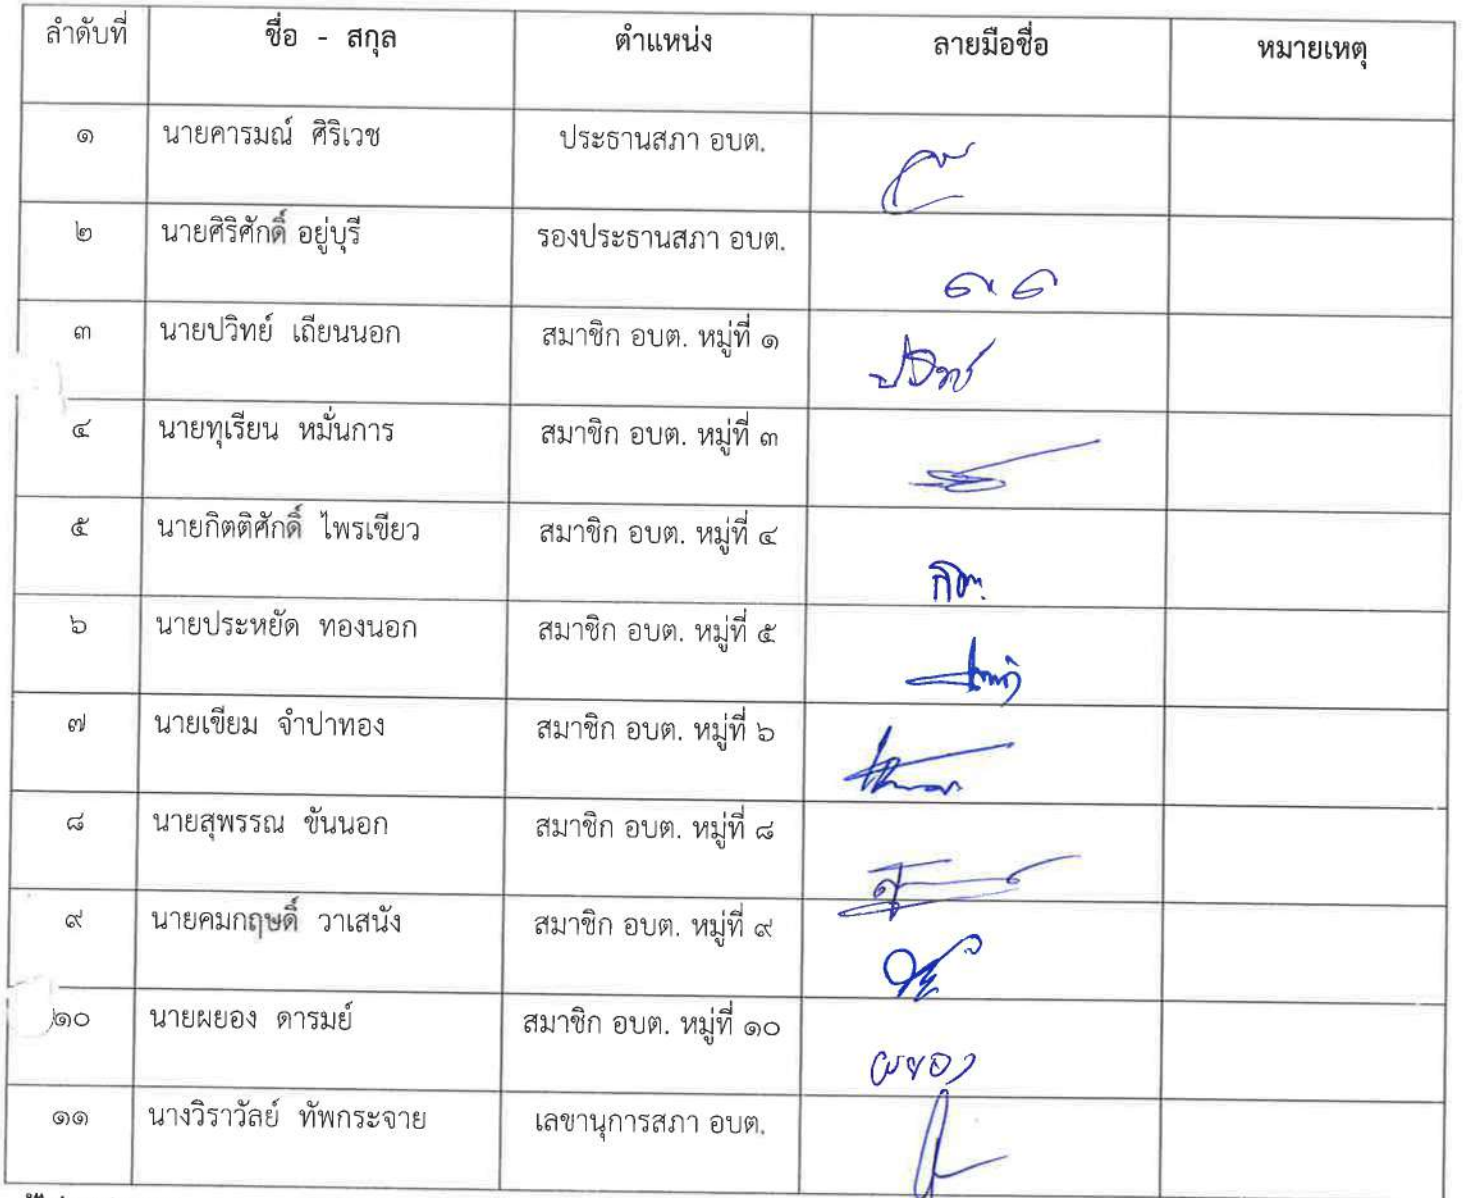 ลำดับที่ ชื่อ - สกุล ตำแหน่ง ลายมือชื่อ หมายเหตุ
๑ นายคารมณ์ ศิริเวช ประธานสภา อบต.
๒ นายศิริศักดิ์ อยู่บุรี รองประธานสภา อบต.
๓ นายปวิทย์ เถียนนอก สมาชิก อบต. หมู่ที่ ๑ ปวิทย์
๔ นายทุเรียน หมั่นการ สมาชิก อบต. หมู่ที่ ๓
๕ นายกิตติศักดิ์ ไพรเขียว สมาชิก อบต. หมู่ที่ ๔
๖ นายประหยัด ทองนอก สมาชิก อบต. หมู่ที่ ๕
๗ นายเขียม จำปาทอง สมาชิก อบต. หมู่ที่ ๖
๘ นายสุพรรณ ขันนอก สมาชิก อบต. หมู่ที่ ๘
๙ นายคมกฤษดิ์ วาเสนัง สมาชิก อบต. หมู่ที่ ๙
๑๐ นายผยอง ดารมย์ สมาชิก อบต. หมู่ที่ ๑๐ ผยอง
๑๑ นางวิราวัลย์ ทัพกระจาย เลขานุการสภา อบต.